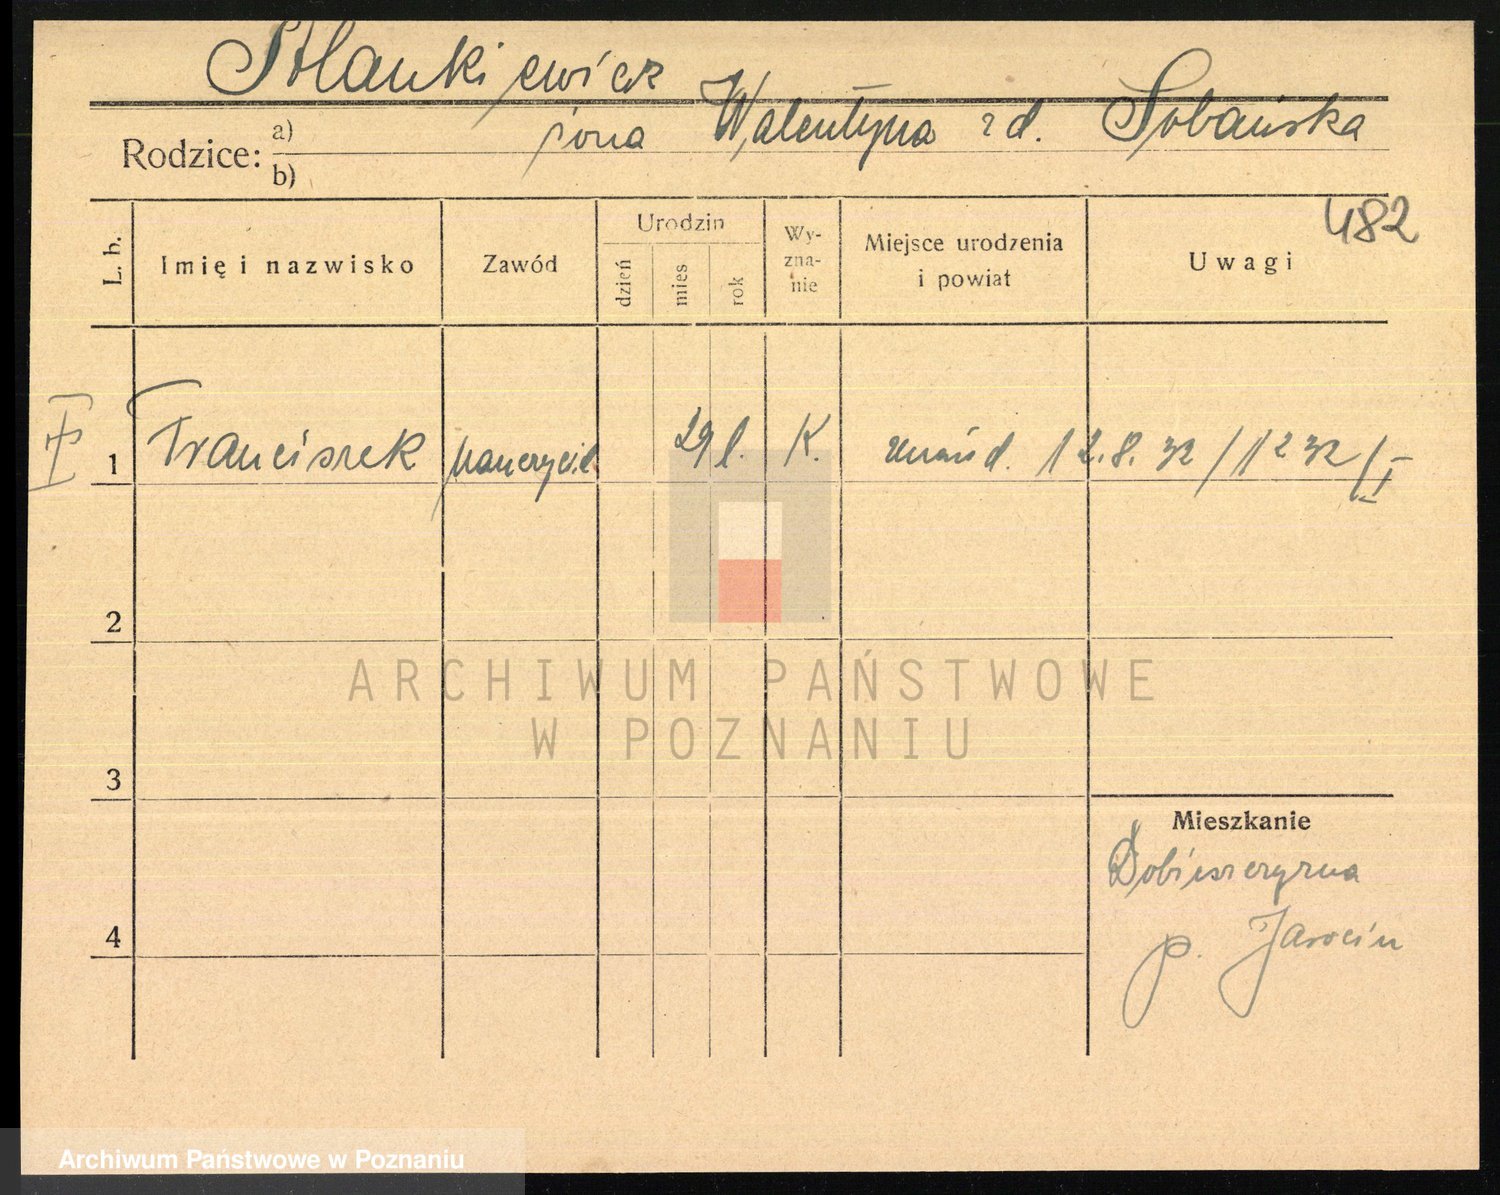 Stankiewicz
żona Walentyna zd. Sobańska
Rodzice: a)
b)
482
L. b. Imię i nazwisko Zawód Urodzin dzień mies rok Wyzna-nie Miejsce urodzenia i powiat Uwagi
1 Franciszek nauczyciel 29 l. K. 12.8.32 / 12 32 / I
2
3
4
Mieszkanie
Dobieszczyzna
p. Jarocin
ARCHIWUM PAŃSTWOWE
W POZNANIU
Archiwum Państwowe w Poznaniu